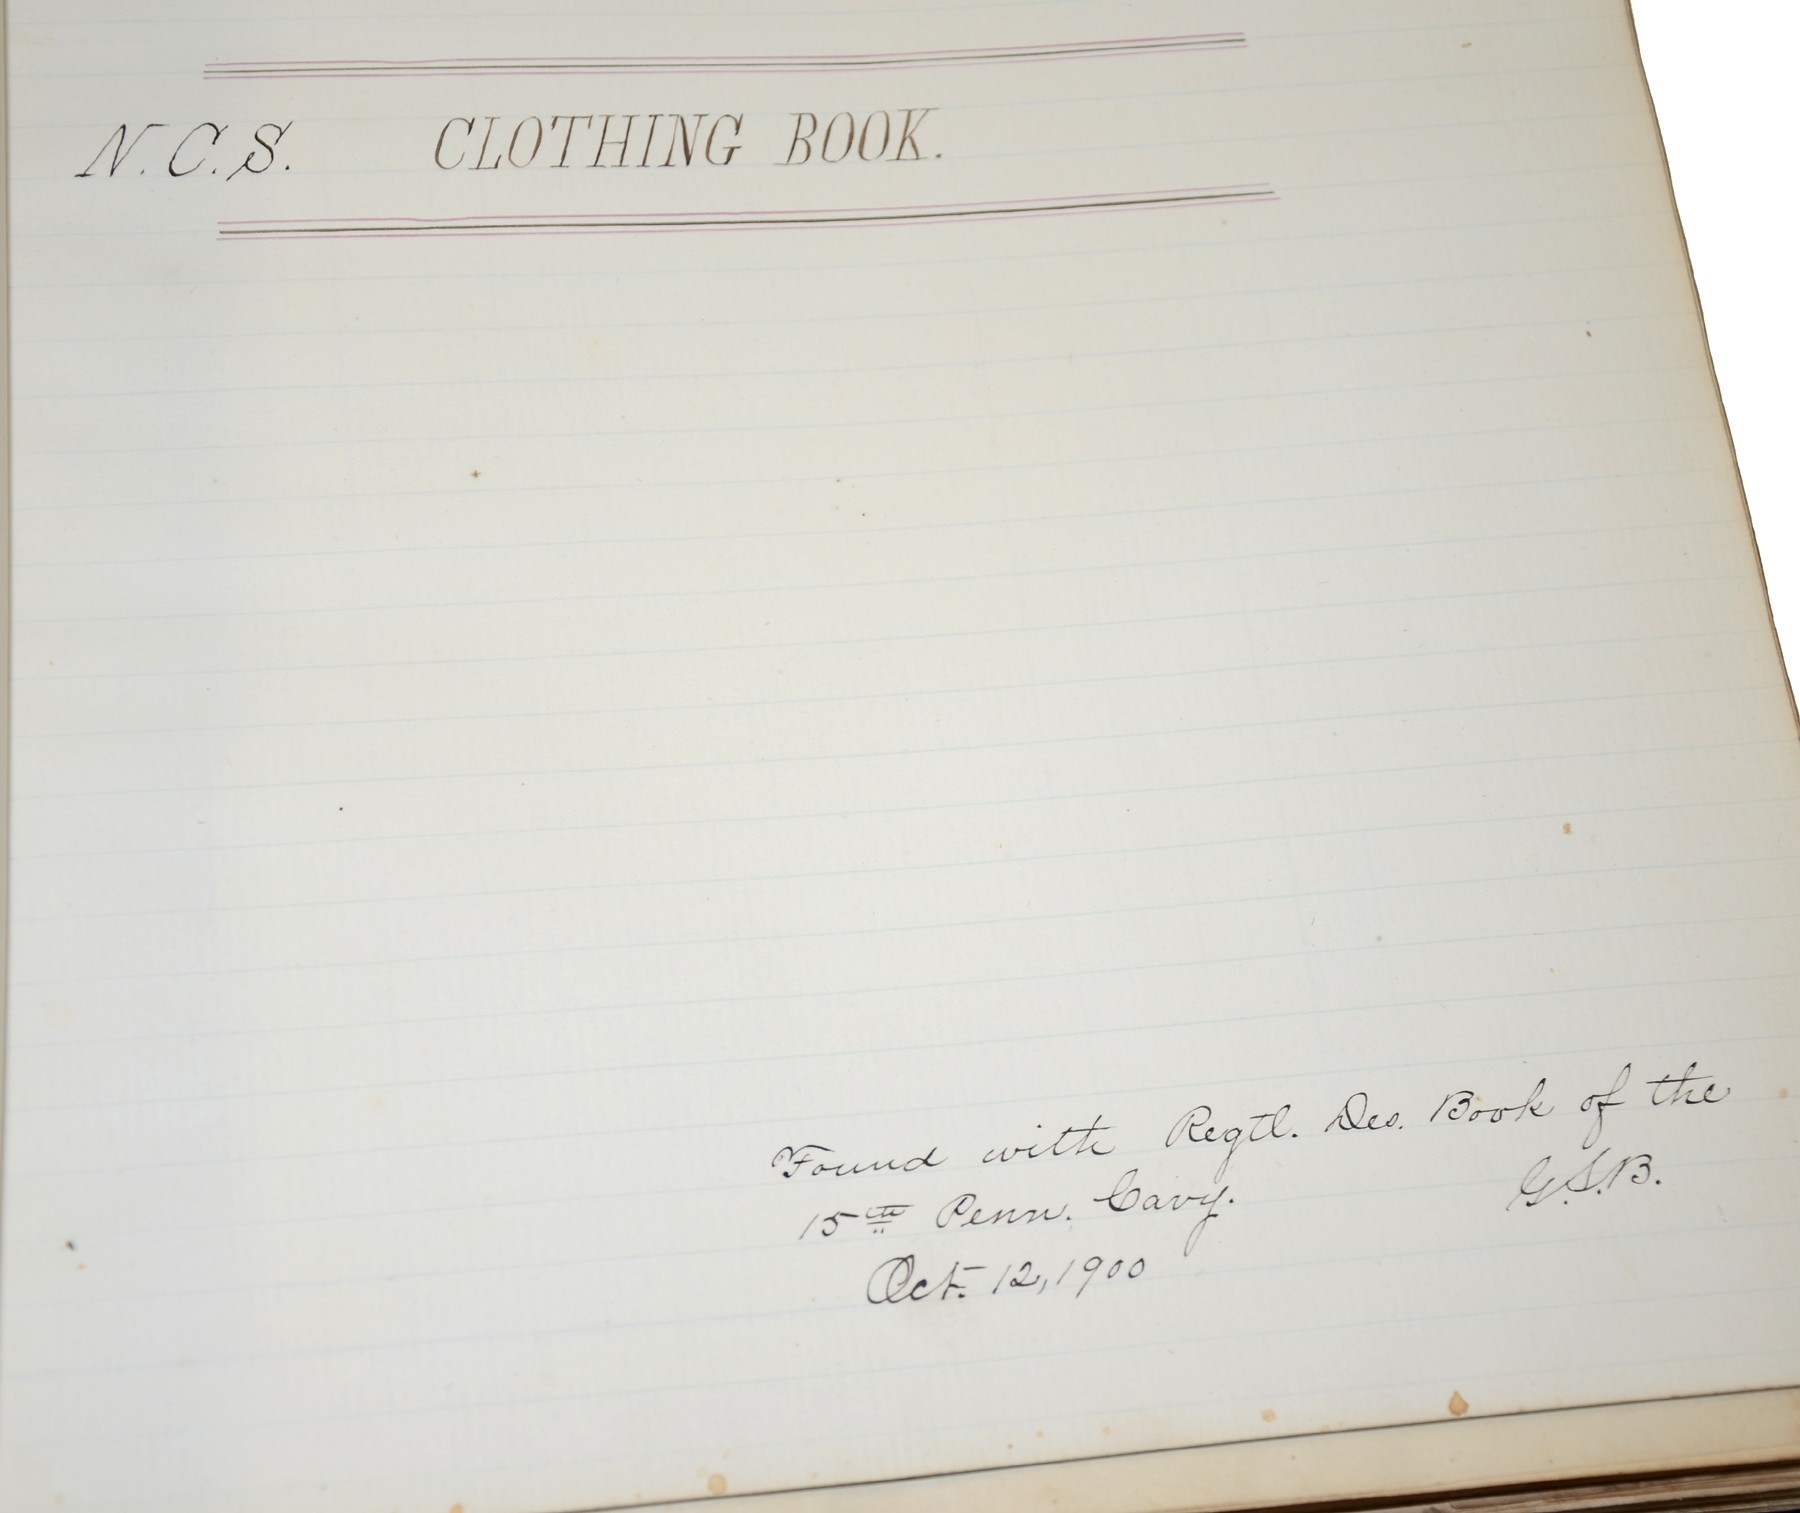 N.C.S. CLOTHING BOOK.
Found with Regtl. Des. Book of the
15th Penn. Cavy. G.S.B.
Oct. 12, 1900